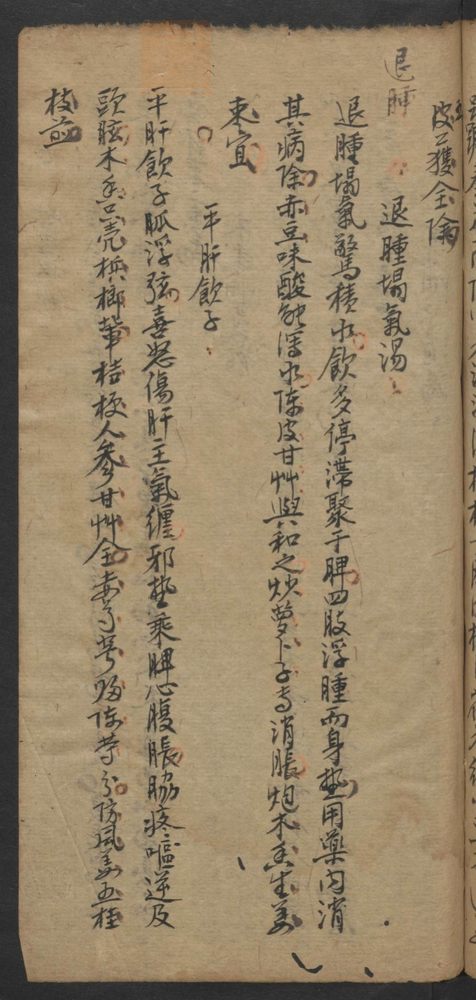 皮二獲全隃
退腫
退腫塌氣湯
退腫塌氣驚積水飲多停滞聚于脾四肢浮腫而身热用藥内消
其病除赤豆味酸能潭水陈皮甘艸與和之炒萝卜子專消脹炮木香生姜
枣宜
平肝飲子
平肝飲子脈浮弦喜怒傷肝主氣纏邪热乘脾心腹脹脇疼嘔逆及
頭眩木香只壳梹榔半桔梗人參甘艸全赤芍芎歸陈等分防風姜五桂
枝煎